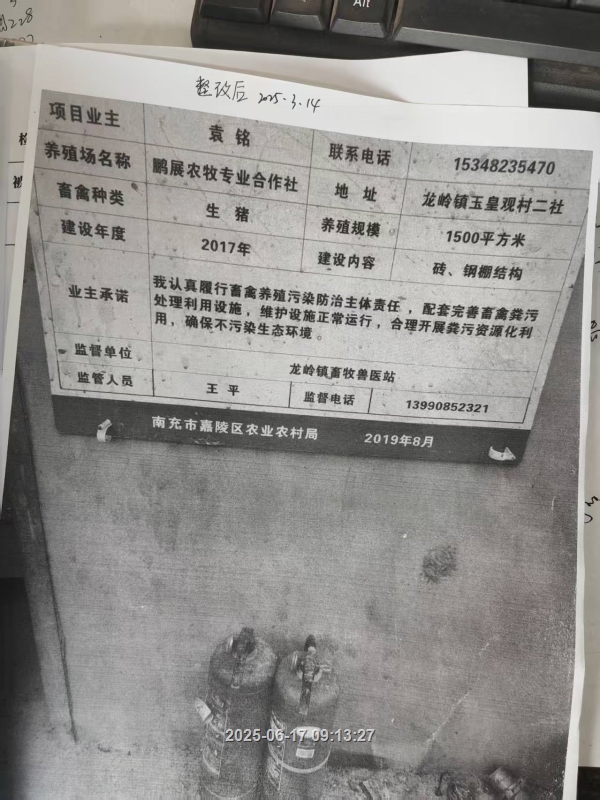 整改后 2025.3.14
项目业主 袁铭 联系电话 15348235470
养殖场名称 鹏展农牧专业合作社 地址 龙岭镇玉皇观村二社
畜禽种类 生猪 养殖规模 1500平方米
建设年度 2017年 建设内容 砖、钢棚结构
业主承诺 我认真履行畜禽养殖污染防治主体责任,配套完善畜禽粪污
处理利用设施,维护设施正常运行,合理开展粪污资源化利
用,确保不污染生态环境。
监督单位 龙岭镇畜牧兽医站
监管人员 王平 监督电话 13990852321
南充市嘉陵区农业农村局 2019年8月
2025-06-17 09:13:27
Alt